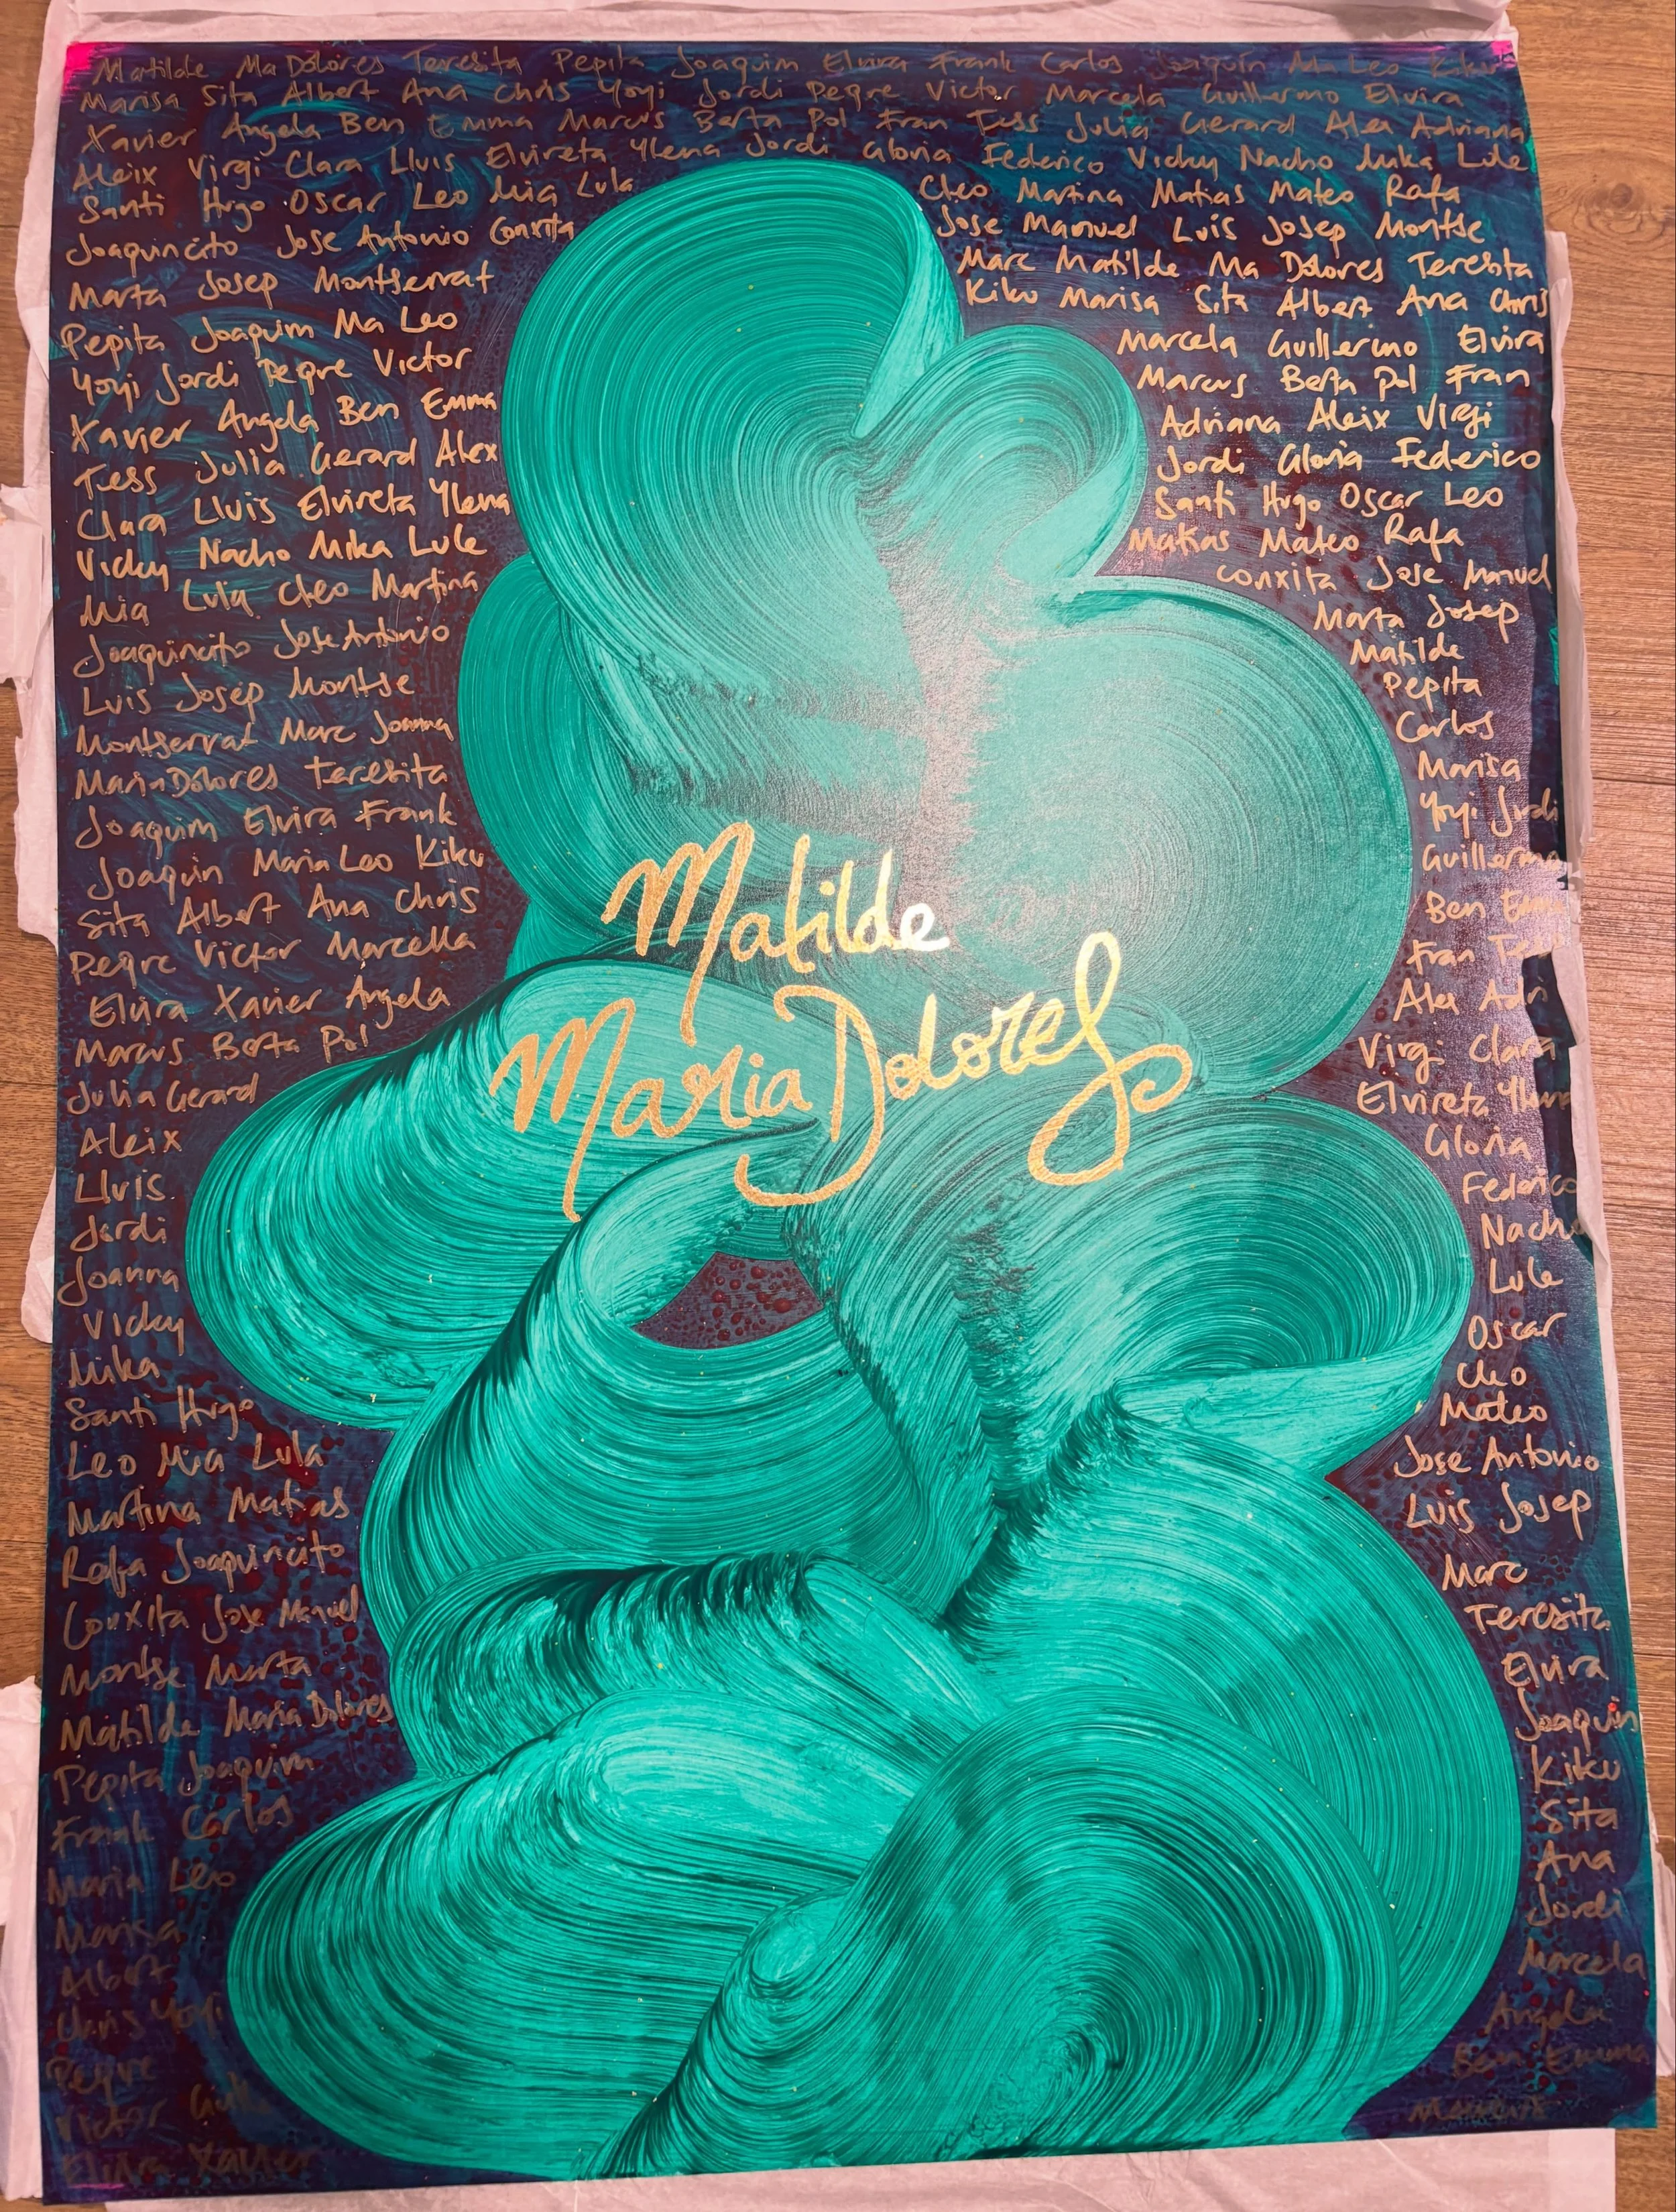 Matilde Ma Dolores Teresita Pepita Joaquim Elvira Frank Carlos Joaquin Ma Leo Kiku
Marisa Sita Albert Ana Chris Yoyi Jordi Peqre Victor Marcela Guillermo Elvira
Xavier Angela Ben Emma Marcus Berta Pol Fran Tess Julia Gerard Alex Adriana
Aleix Virgi Clara Lluis Elvireta Ylena Jordi Gloria Federico Vicky Nacho Mika Lule
Santi Hugo Oscar Leo Mia Lula
Joaquincito Jose Antonio Conxita
Marta Josep Montserrat
Pepita Joaquim Ma Leo
Yoyi Jordi Peqre Victor
Xavier Angela Ben Emma
Tess Julia Gerard Alex
Clara Lluis Elvireta Ylena
Vicky Nacho Mika Lule
Mia Lula Cleo Martina
Joaquincito Jose Antonio
Luis Josep Montse
Montserrat Marc Joanna
Maria Dolores Teresita
Joaquim Elvira Frank
Joaquin Maria Leo Kiku
Sita Albert Ana Chris
Peqre Victor Marcella
Elvira Xavier Angela
Marcus Berta Pol
Julia Gerard
Aleix
Lluis.
Jordi
Joanna
Vicky
Mika
Santi Hugo
Leo Mia Lula
Martina Matias
Rafa Joaquincito
Conxita Jose Manuel
Montse Marta
Matilde Maria Dolores
Pepita Joaquim
Frank Carlos
Maria Leo
Albert
Chris Yoyi
Peqre
Victor
Elvira Xavier
Matilde
Maria Dolores
Cleo Martina Matias Mateo Rafa
Jose Manuel Luis Josep Montse
Marc Matilde Ma Dolores Teresita
Kiku Marisa Sita Albert Ana Chris
Marcela Guillermo Elvira
Marcus Berta Pol Fran
Adriana Aleix Virgi
Jordi Gloria Federico
Santi Hugo Oscar Leo
Matias Mateo Rafa
Conxita Jose Manuel
Marta Josep
Matilde
Pepita
Carlos
Marisa
Yoyi Jordi
Guillermo
Ben Emma
Fran Tess
Alex Adri
Virgi Clara
Elvireta Ylena
Gloria
Federico
Nacho
Lule
Oscar
Cleo
Mateo
Jose Antonio
Luis Josep
Marc
Teresita
Elvira
Joaquin
Kiku
Sita
Ana
Jordi
Marcela
Angela
Ben Emma